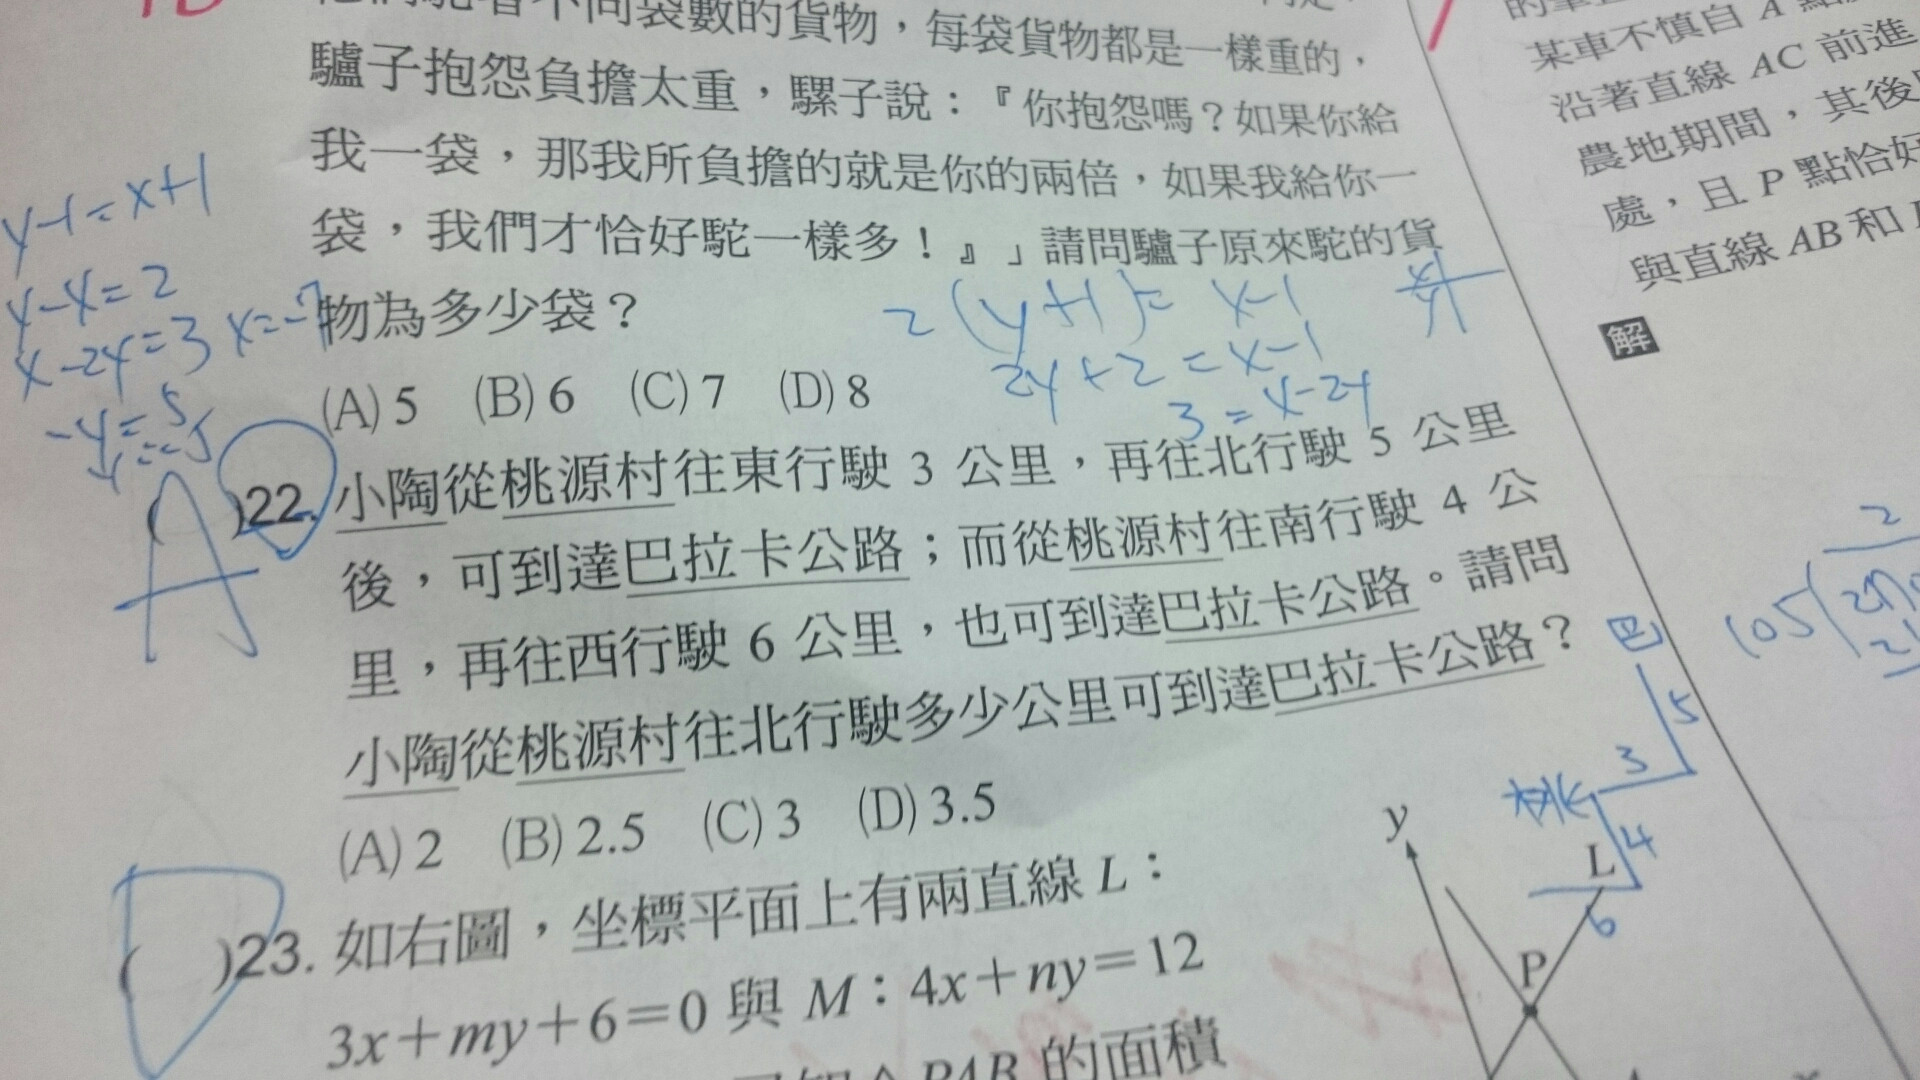 們駝著不同袋數的貨物，每袋貨物都是一樣重的，
驢子抱怨負擔太重，騾子說：『你抱怨嗎？如果你給
我一袋，那我所負擔的就是你的兩倍，如果我給你一
袋，我們才恰好駝一樣多！』」請問驢子原來駝的貨
物為多少袋？
(A) 5 (B) 6 (C) 7 (D) 8
y-1=x+1
y-x=2
x-2y=3 x=-7
-y=5
y=-5
2(y+1)=x-1
2y+2=x-1
3=x-2y
A
( )22. 小陶從桃源村往東行駛 3 公里，再往北行駛 5 公里
後，可到達巴拉卡公路；而從桃源村往南行駛 4 公
里，再往西行駛 6 公里，也可到達巴拉卡公路。請問
小陶從桃源村往北行駛多少公里可到達巴拉卡公路？
(A) 2 (B) 2.5 (C) 3 (D) 3.5
巴
5
3
桃
4
6
D
( )23. 如右圖，坐標平面上有兩直線 L：
3x＋my＋6＝0 與 M：4x＋ny＝12
PAB 的面積
y
L
P
某車不慎自 A 點
沿著直線 AC 前進
農地期間，其後
處，且 P 點恰好
與直線 AB 和
解
2
105